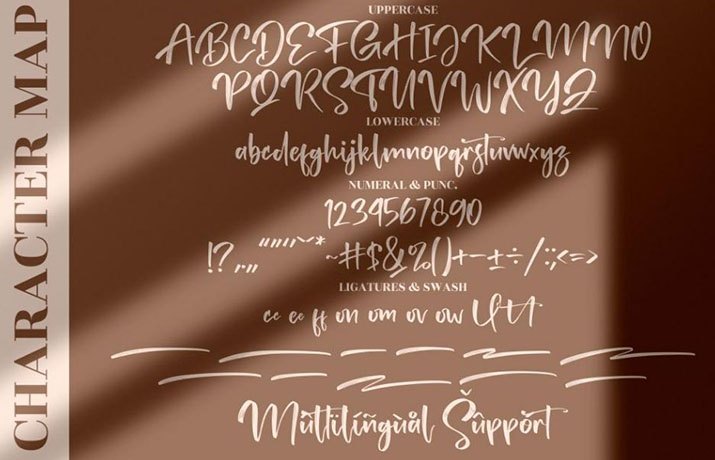 CHARACTER MAP
UPPERCASE
ABCDEFGHIJKLMNO
PQRSTUVWXYZ
LOWERCASE
abcdefghijklmnopqrstuvwxyz
NUMERAL & PUNC.
1234567890
!?.,„""''ˇ˜*~#$&%()+-±÷/:;<=>
LIGATURES & SWASH
cc ee ff on om ov ow Ll tt
Mûltïlíñgùål Šûppórt